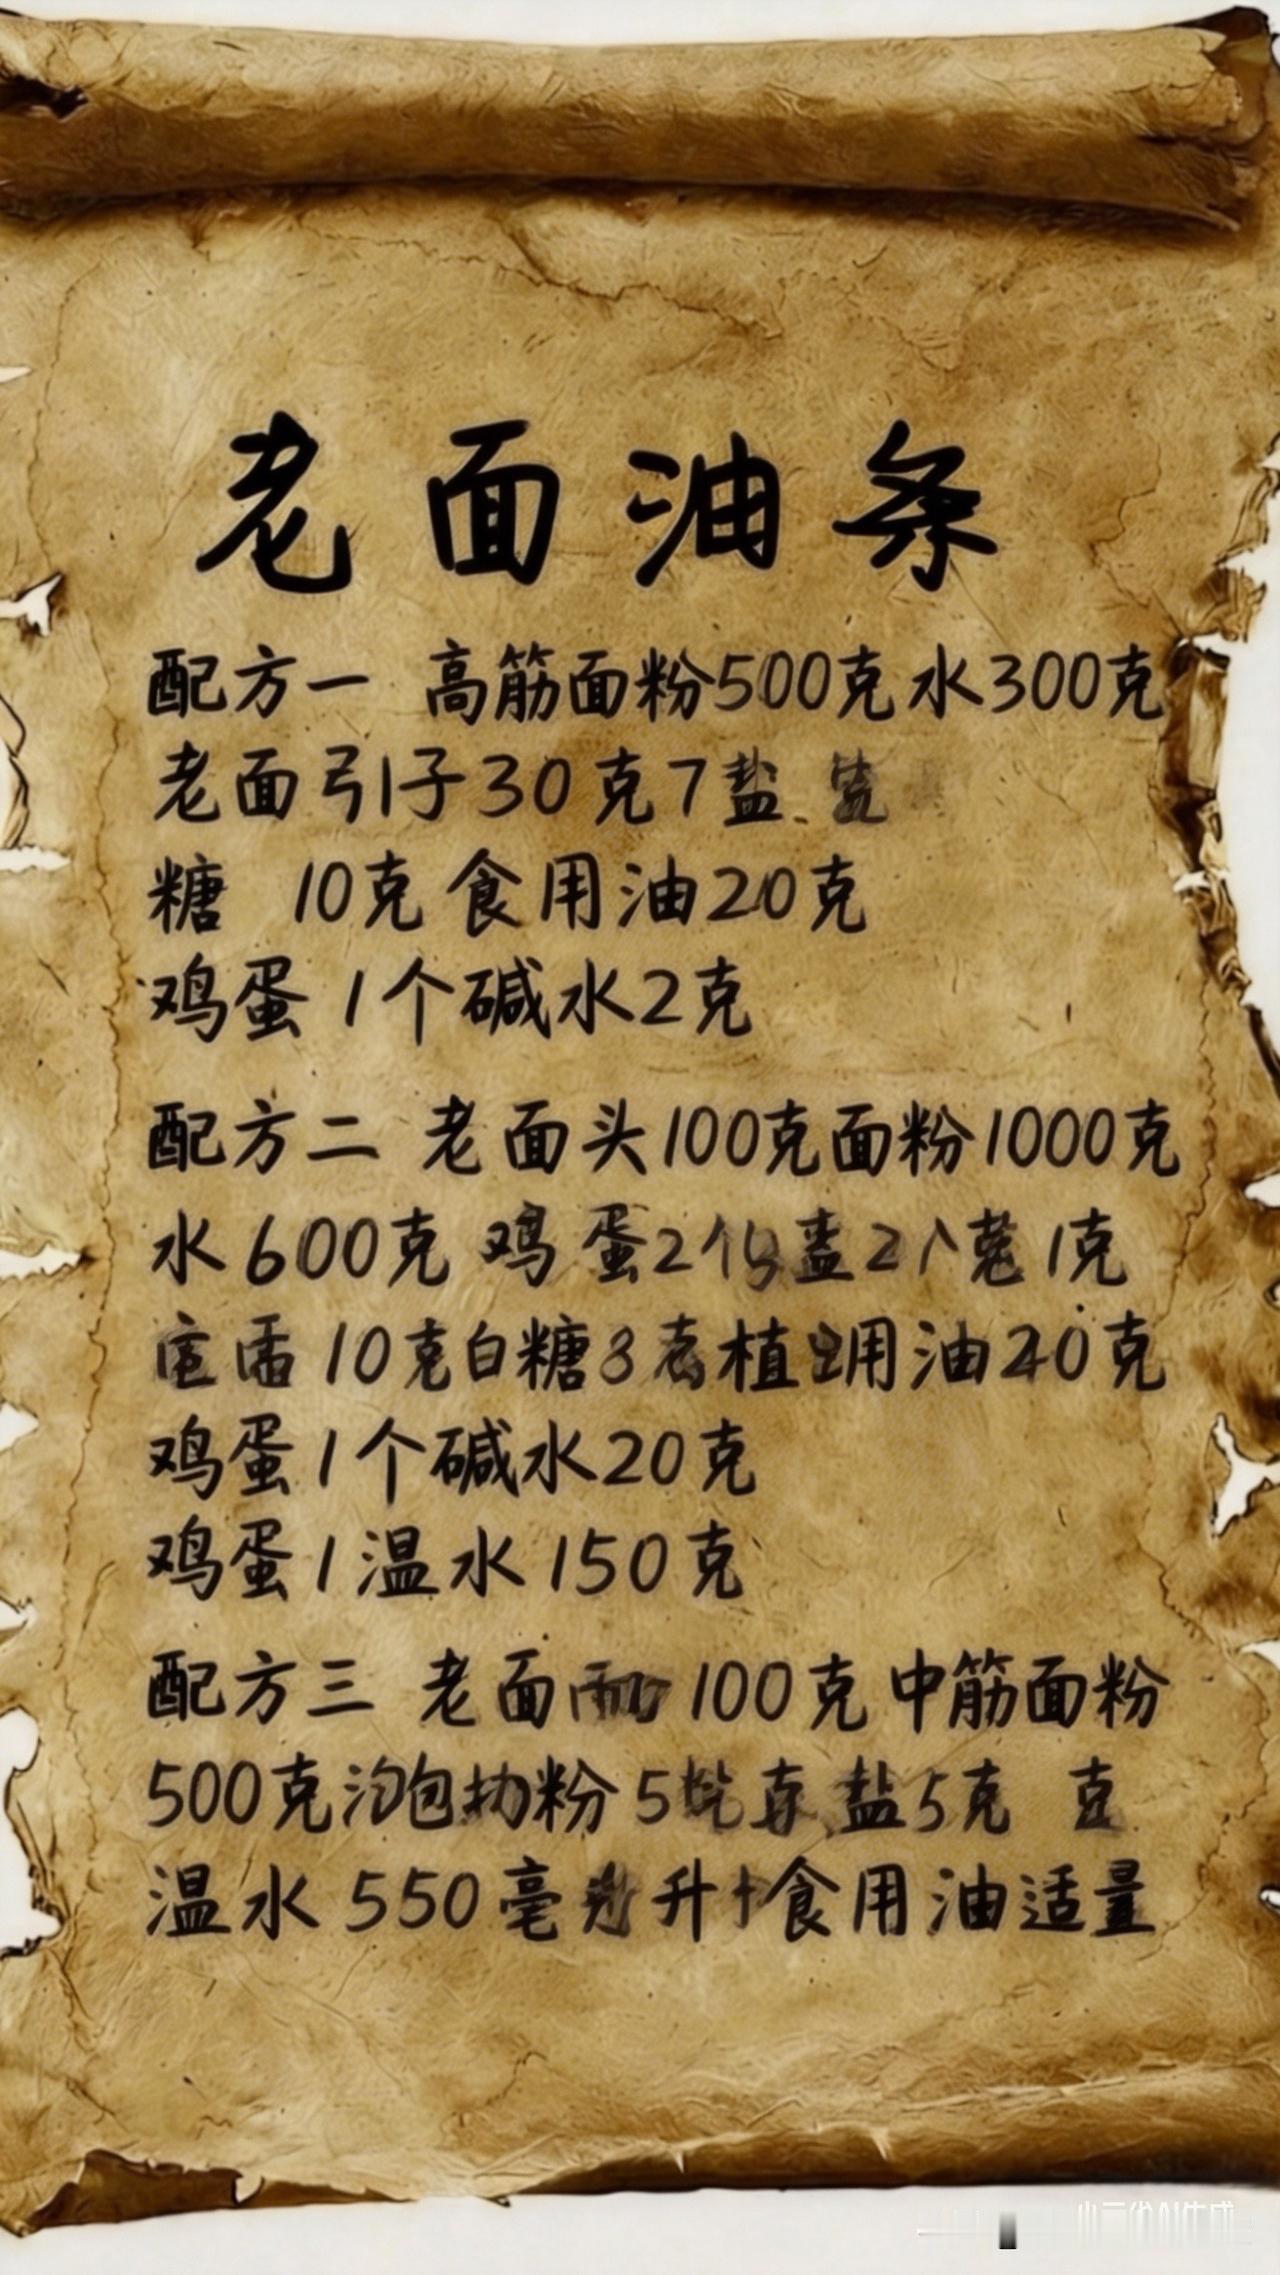 老面油条
配方一 高筋面粉500克 水300克
老面引子30克7盐
糖 10克 食用油20克
鸡蛋 1个碱水2克
配方二 老面头100克面粉1000克
水600克 鸡蛋2 1克
10克白糖3 植 用油20克
鸡蛋1个碱水20克
鸡蛋1温水150克
配方三 老面 100克 中筋面粉
500克泡 粉 5 盐5克 克
温水 550毫 升 食用油适量